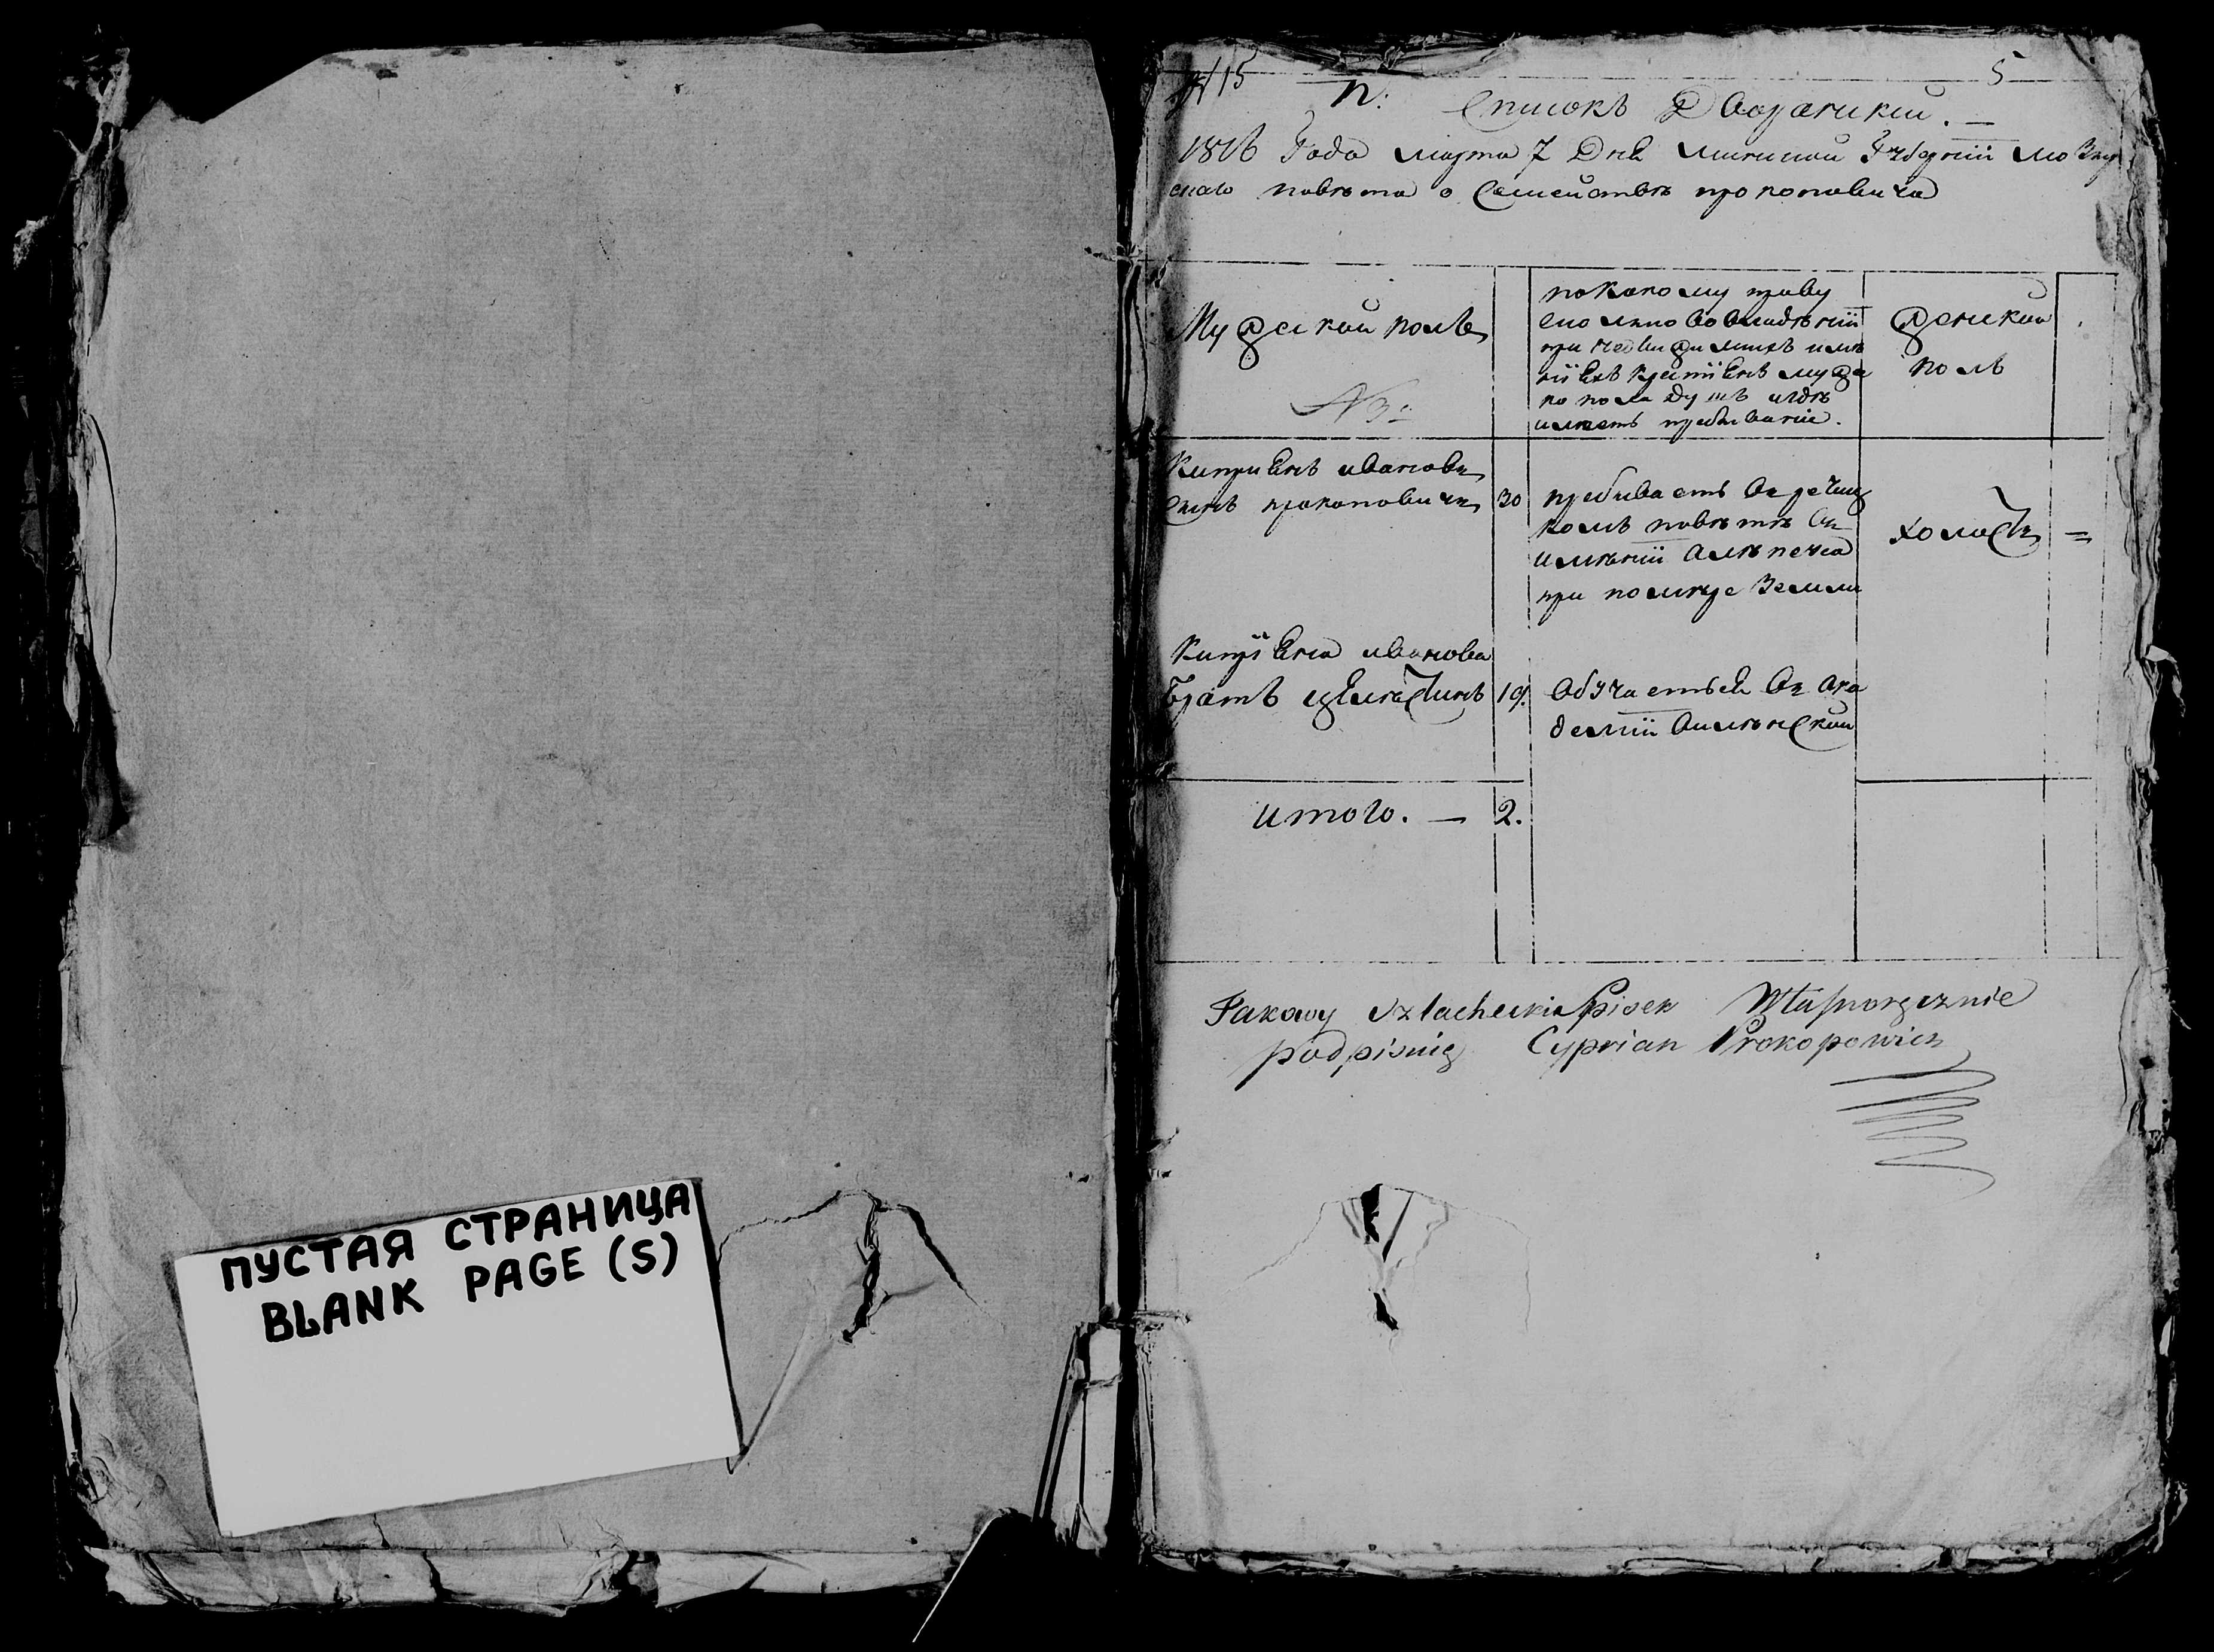 ПУСТАЯ СТРАНИЦА
BLANK PAGE (S)
15
5
П: Списокъ Дворянский. —
1816 Года марта 7 Дня минской Губернии мозыр
скаго повѣта о Семействѣ прокоповича
Мужеский полъ
№ 3:
по какому праву
во владѣнии
при имѣ
крестиянъ мужс
ко пола душъ игдѣ
имѣетъ пребывание.
женский
полъ
Киприянъ ивановъ
Сынъ прокоповичъ
30
пребиваетъ въ речиц
комъ повѣтѣ въ
имѣнии
при земли
холостъ
=
Киприяна иванова
Братъ
19.
обучаеться въ Ака
демии виленской
итого. — 2.
Takowy Szlachecki Spisek Własnoręcznie
podpisuię Cyprian Prokopowicz